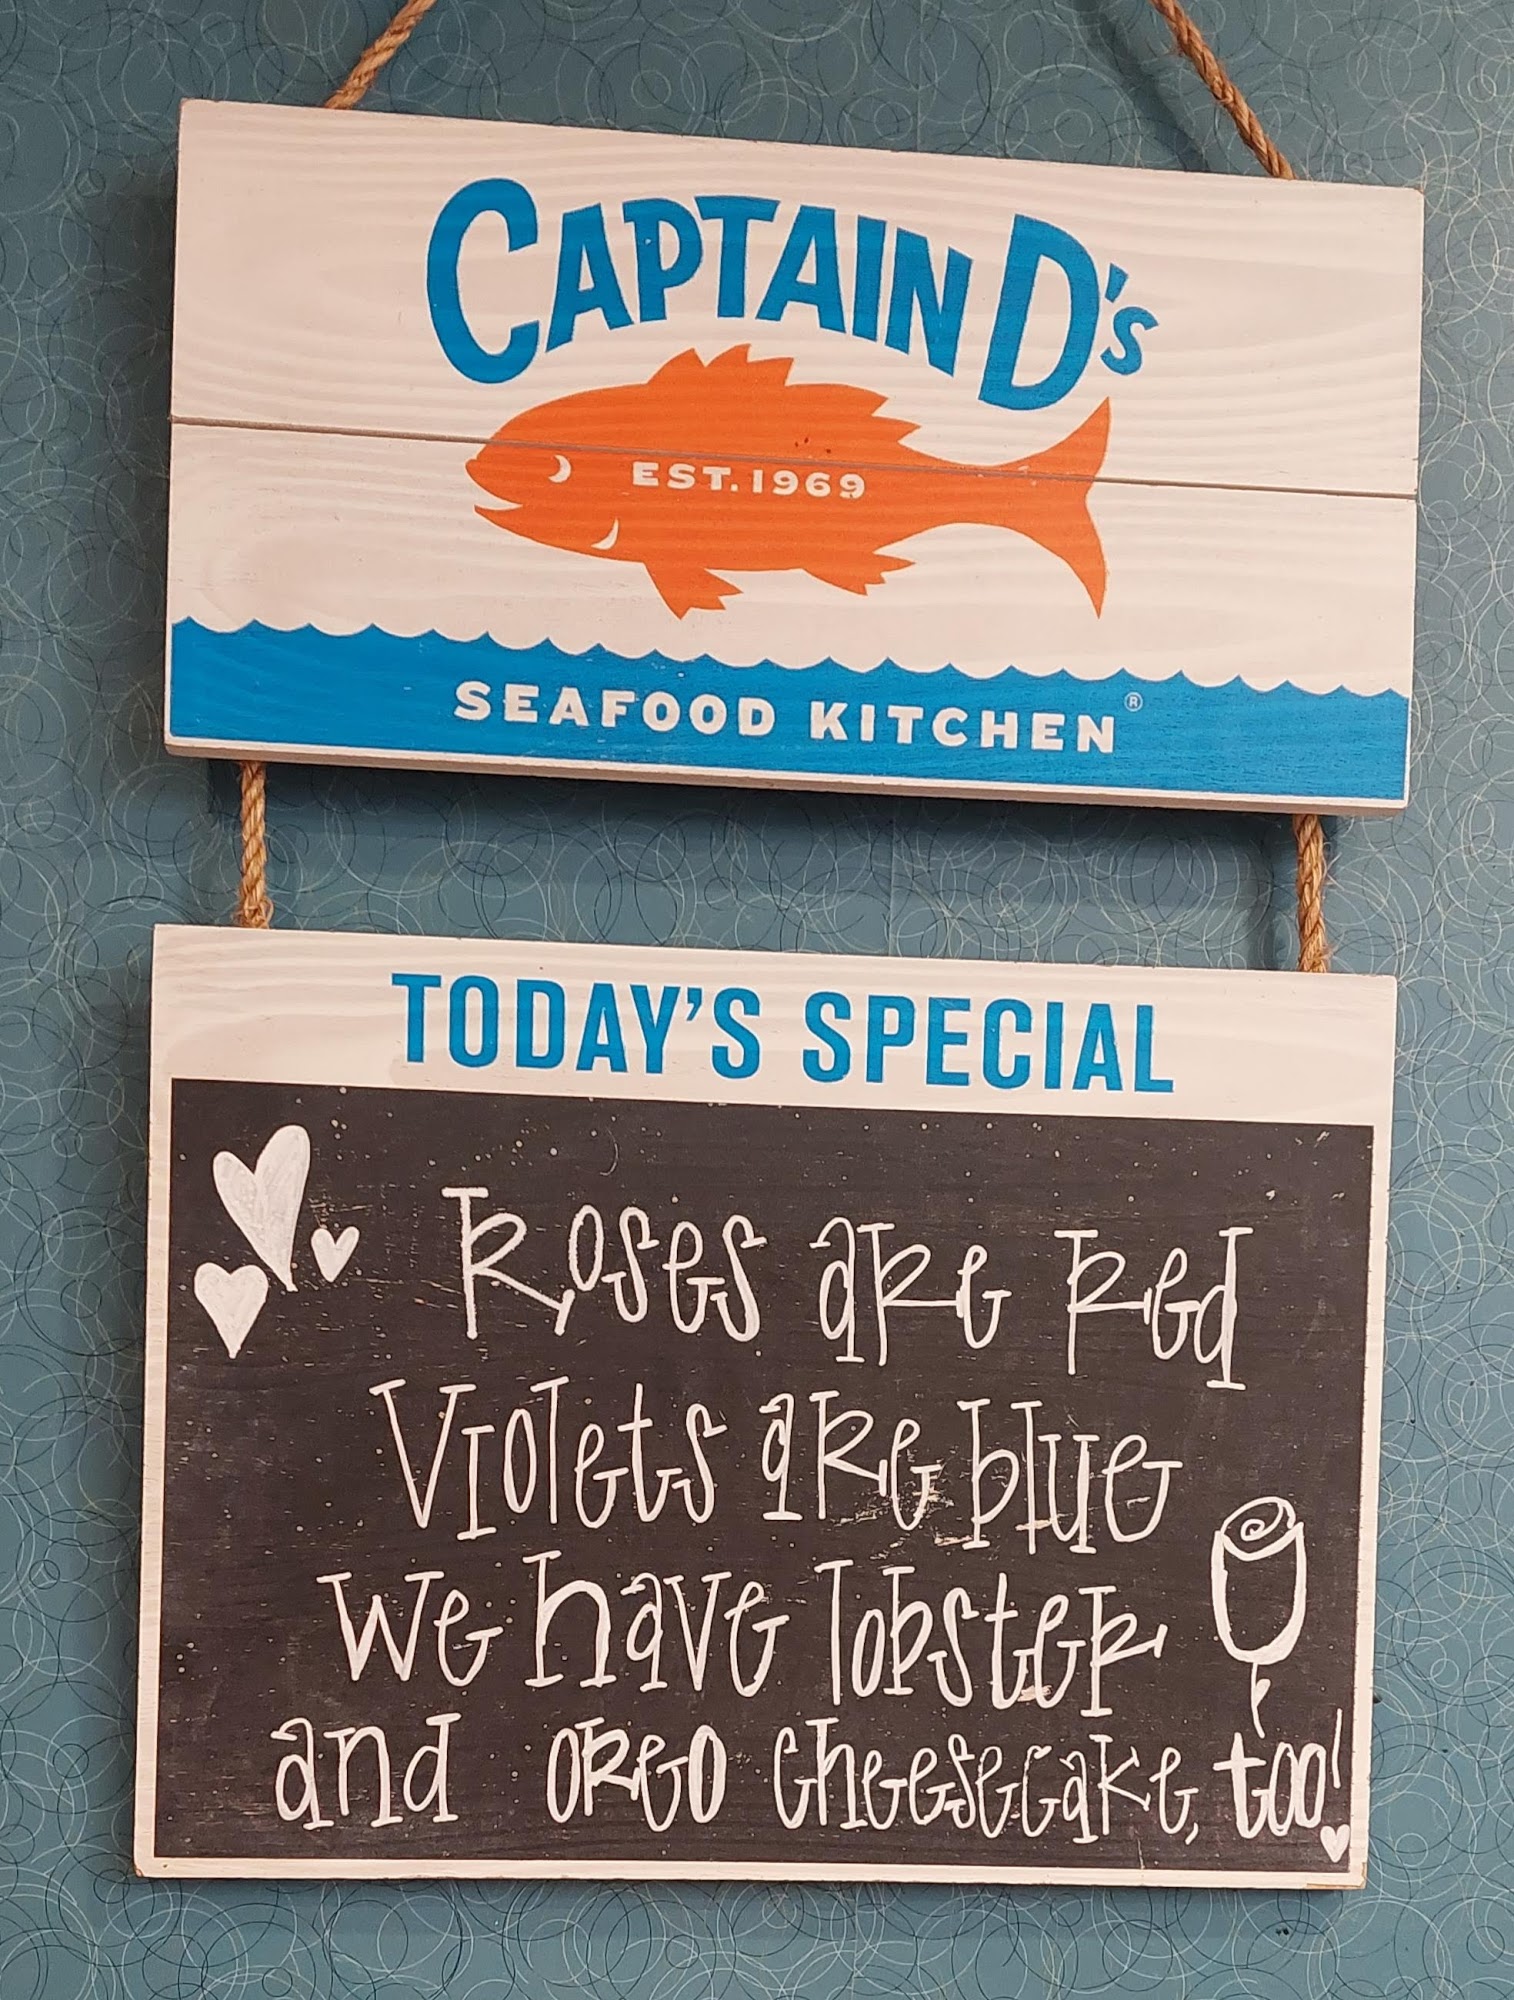 CAPTAIN D's
EST. 1969
SEAFOOD KITCHEN®
TODAY'S SPECIAL
Roses are red
Violets are blue
We have lobster
and oreo cheesecake, too!